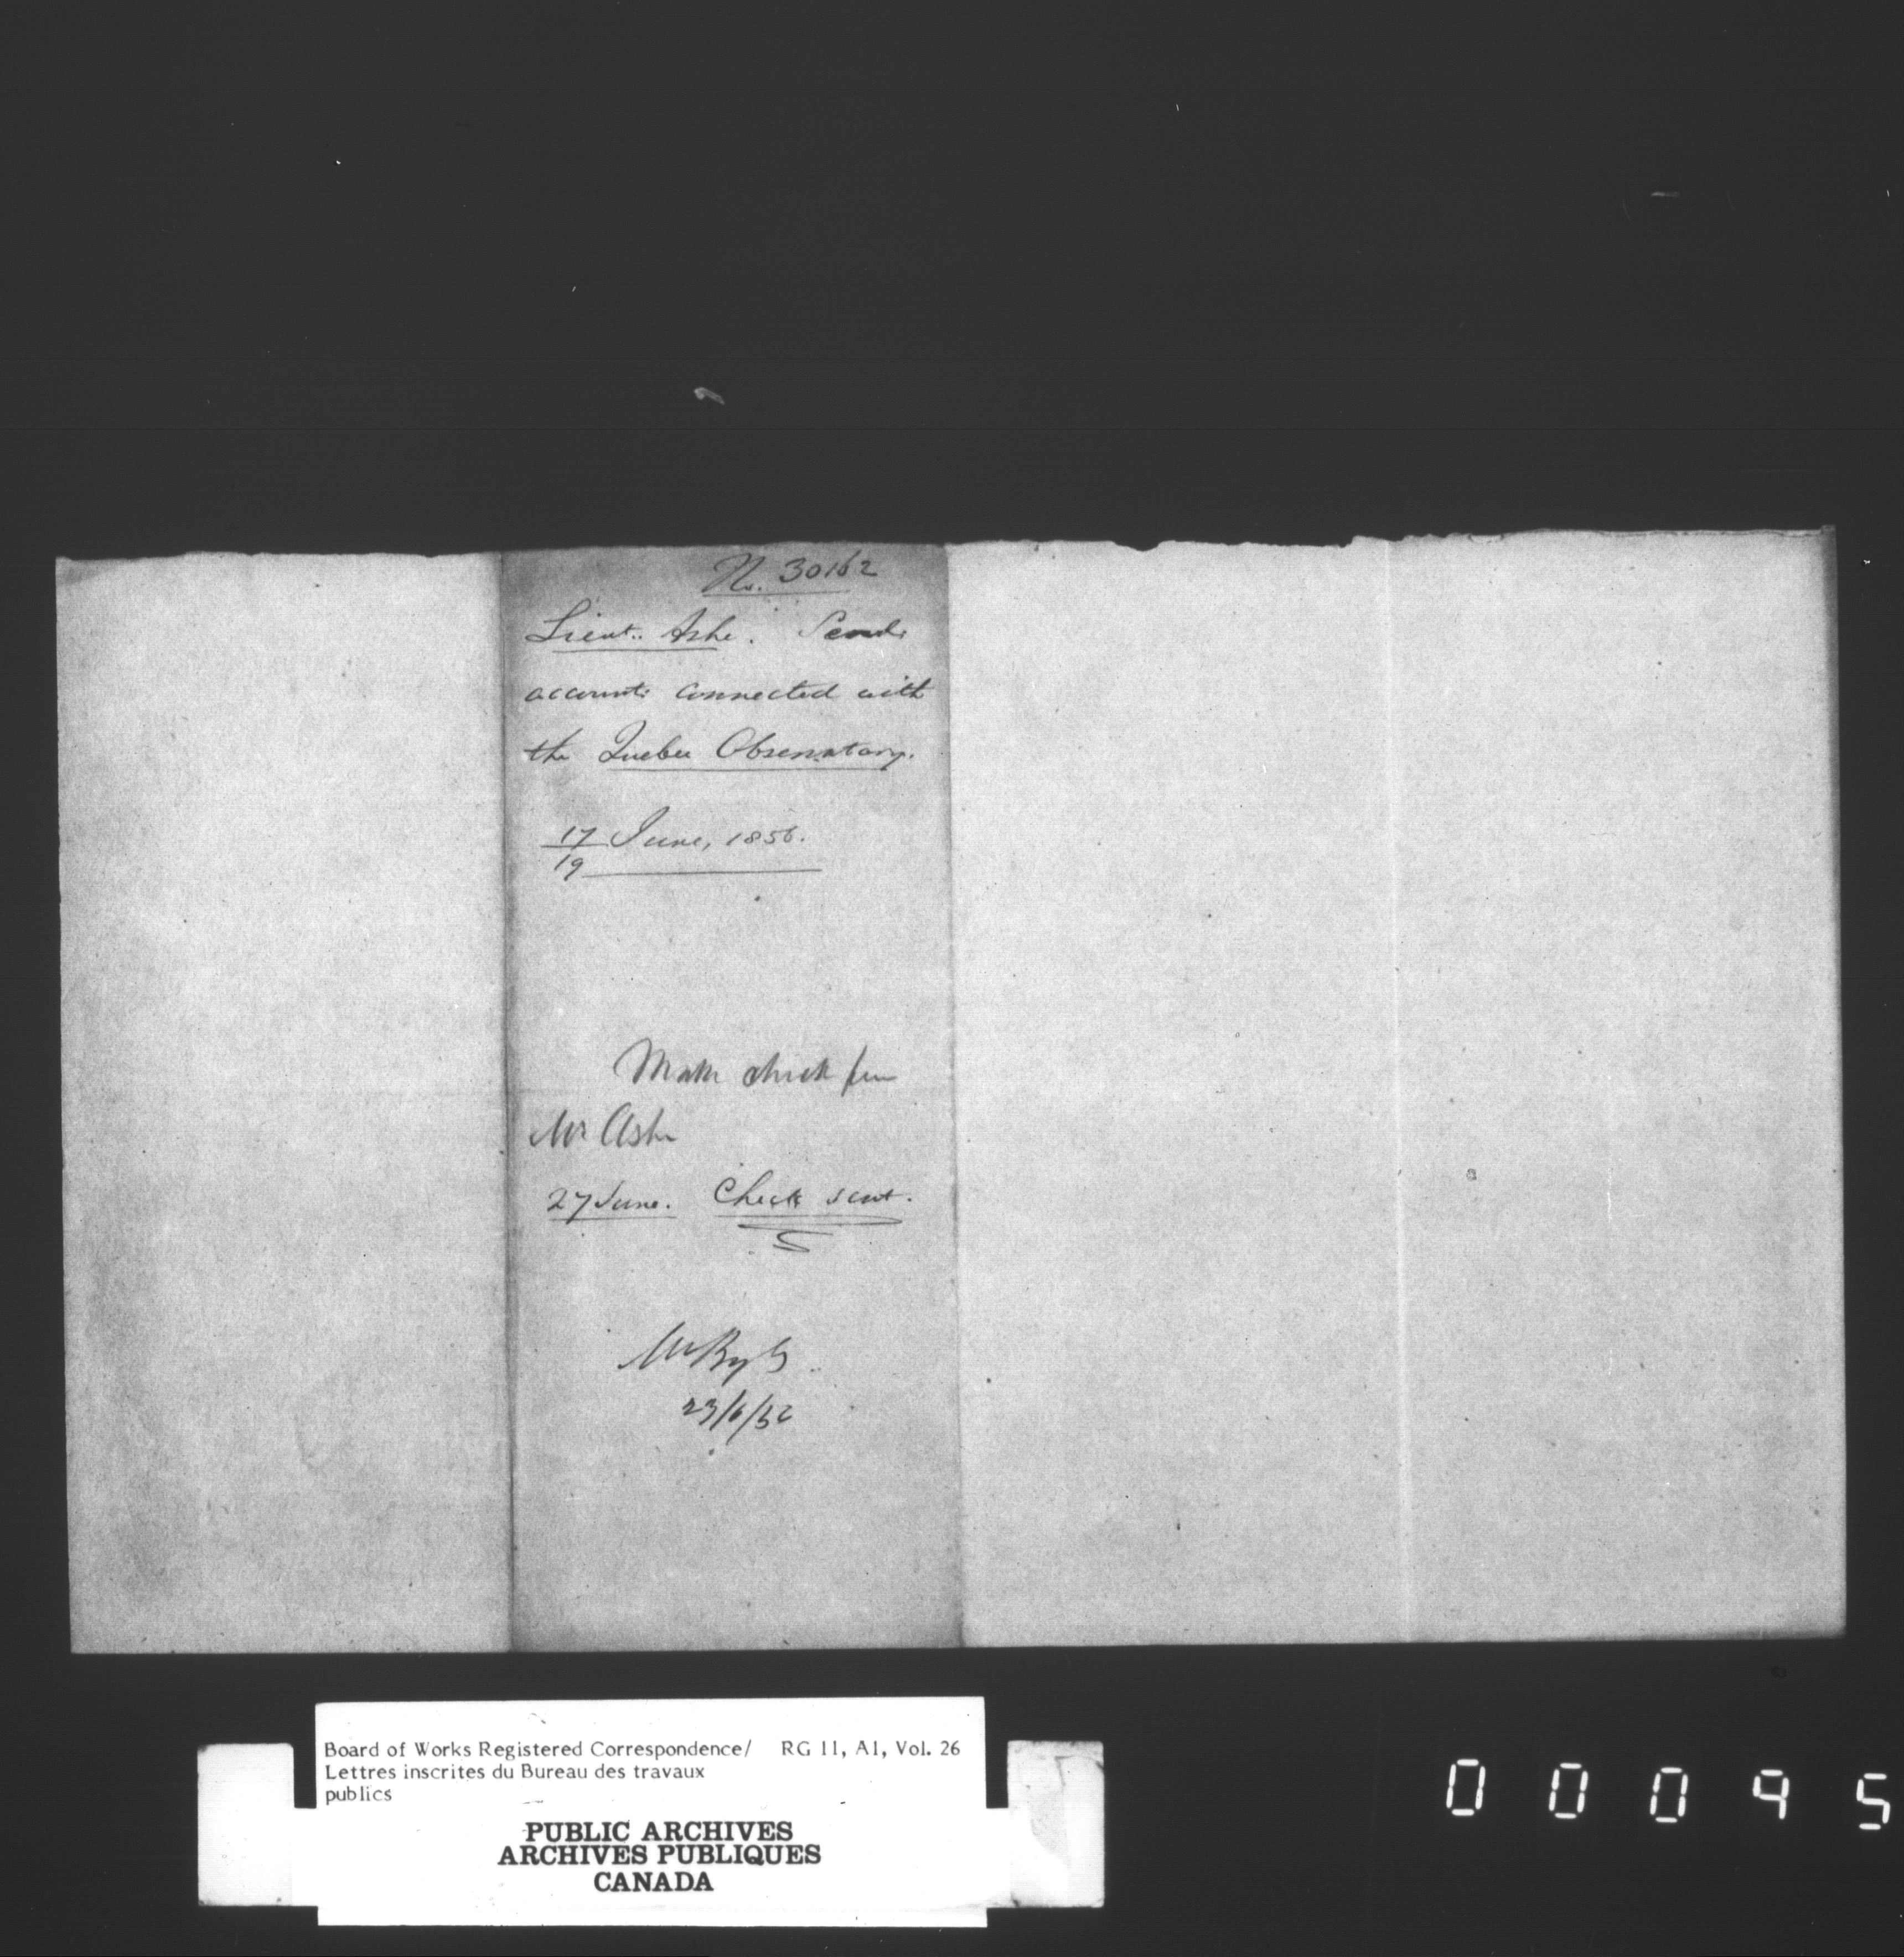 No. 30162
Lieut. Ashe. Sends
accounts connected with
the Quebec Observatory.
17 June, 1856.
19
Make check for
Mr Ashe
27 June. Check sent.
23/6/56
Board of Works Registered Correspondence/ RG 11, A1, Vol. 26
Lettres inscrites du Bureau des travaux
publics
PUBLIC ARCHIVES
ARCHIVES PUBLIQUES
CANADA
00095